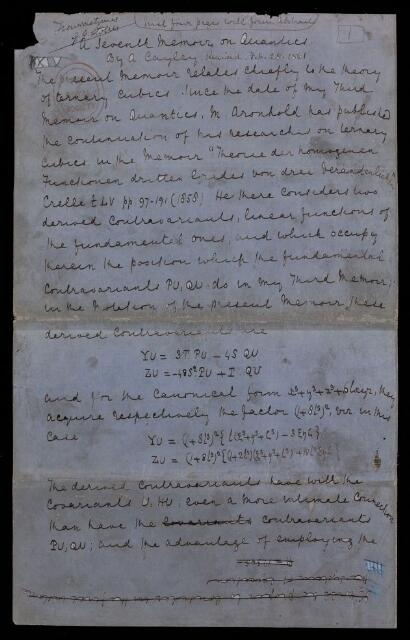 first four pages will form Abstract
1
A Seventh Memoir on Quantics
By A Cayley Received Feb. 28. 1861
XXIV
The present Memoir relates chiefly to the theory
of ternary cubics. Since the date of my Third
Memoir on Quantics, M. Aronhold has published
the continuation of his researches on ternary
cubics in the Memoir "Theorie der homogenen
Functionen dritten Grades von drei Veränderlichen"
Crelle t LV pp. 97-191 (1858). He there considers two
derived contravariants, linear functions of
the fundamental ones, and which occupy
therein the position which the fundamental
contravariants PU, QU do in my Third Memoir;
in the notation of the present Memoir, these
derived contravariants are
YU = 3T. PU - 4S QU
ZU = -48S² PU + T QU
and for the canonical form x³+y³+z³+6lxyz, they
acquire respectively the factor (1+8l³)², viz in this
case
YU = (1+8l³)²{l(ξ³+η³+ζ³) - 3ξηζ}
ZU = (1+8l³)²{(1+2l³)(ξ³+η³+ζ³) + 18l²ξηζ}
The derived contravariants have with the
covariants U, HU, even a more intimate connection
than have the covariants contravariants
PU, QU; and the advantage of employing the